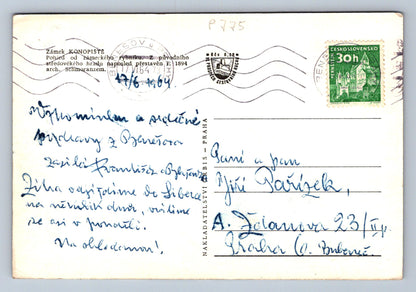 P 775
Zámek KONOPIŠTĚ
Pohled od zámeckého rybníka. Z původního
středověkého hradu naposled přestavěn r. 1894
arch. Schmoranzem.
17/6 1964
ČESKOSLOVENSKO
30h
Vzpomínku a srdečné
pozdravy z Benešova
zasílá František a
Zítra odjíždíme do Liberce
na několik dnů, vrátíme
se asi v pondělí.
Na shledanou!
NAKLADATELSTVÍ ORBIS - PRAHA
Paní a pan
Jiří Pařízek,
A. Ždanova 23/
Praha 6. Bubeneč